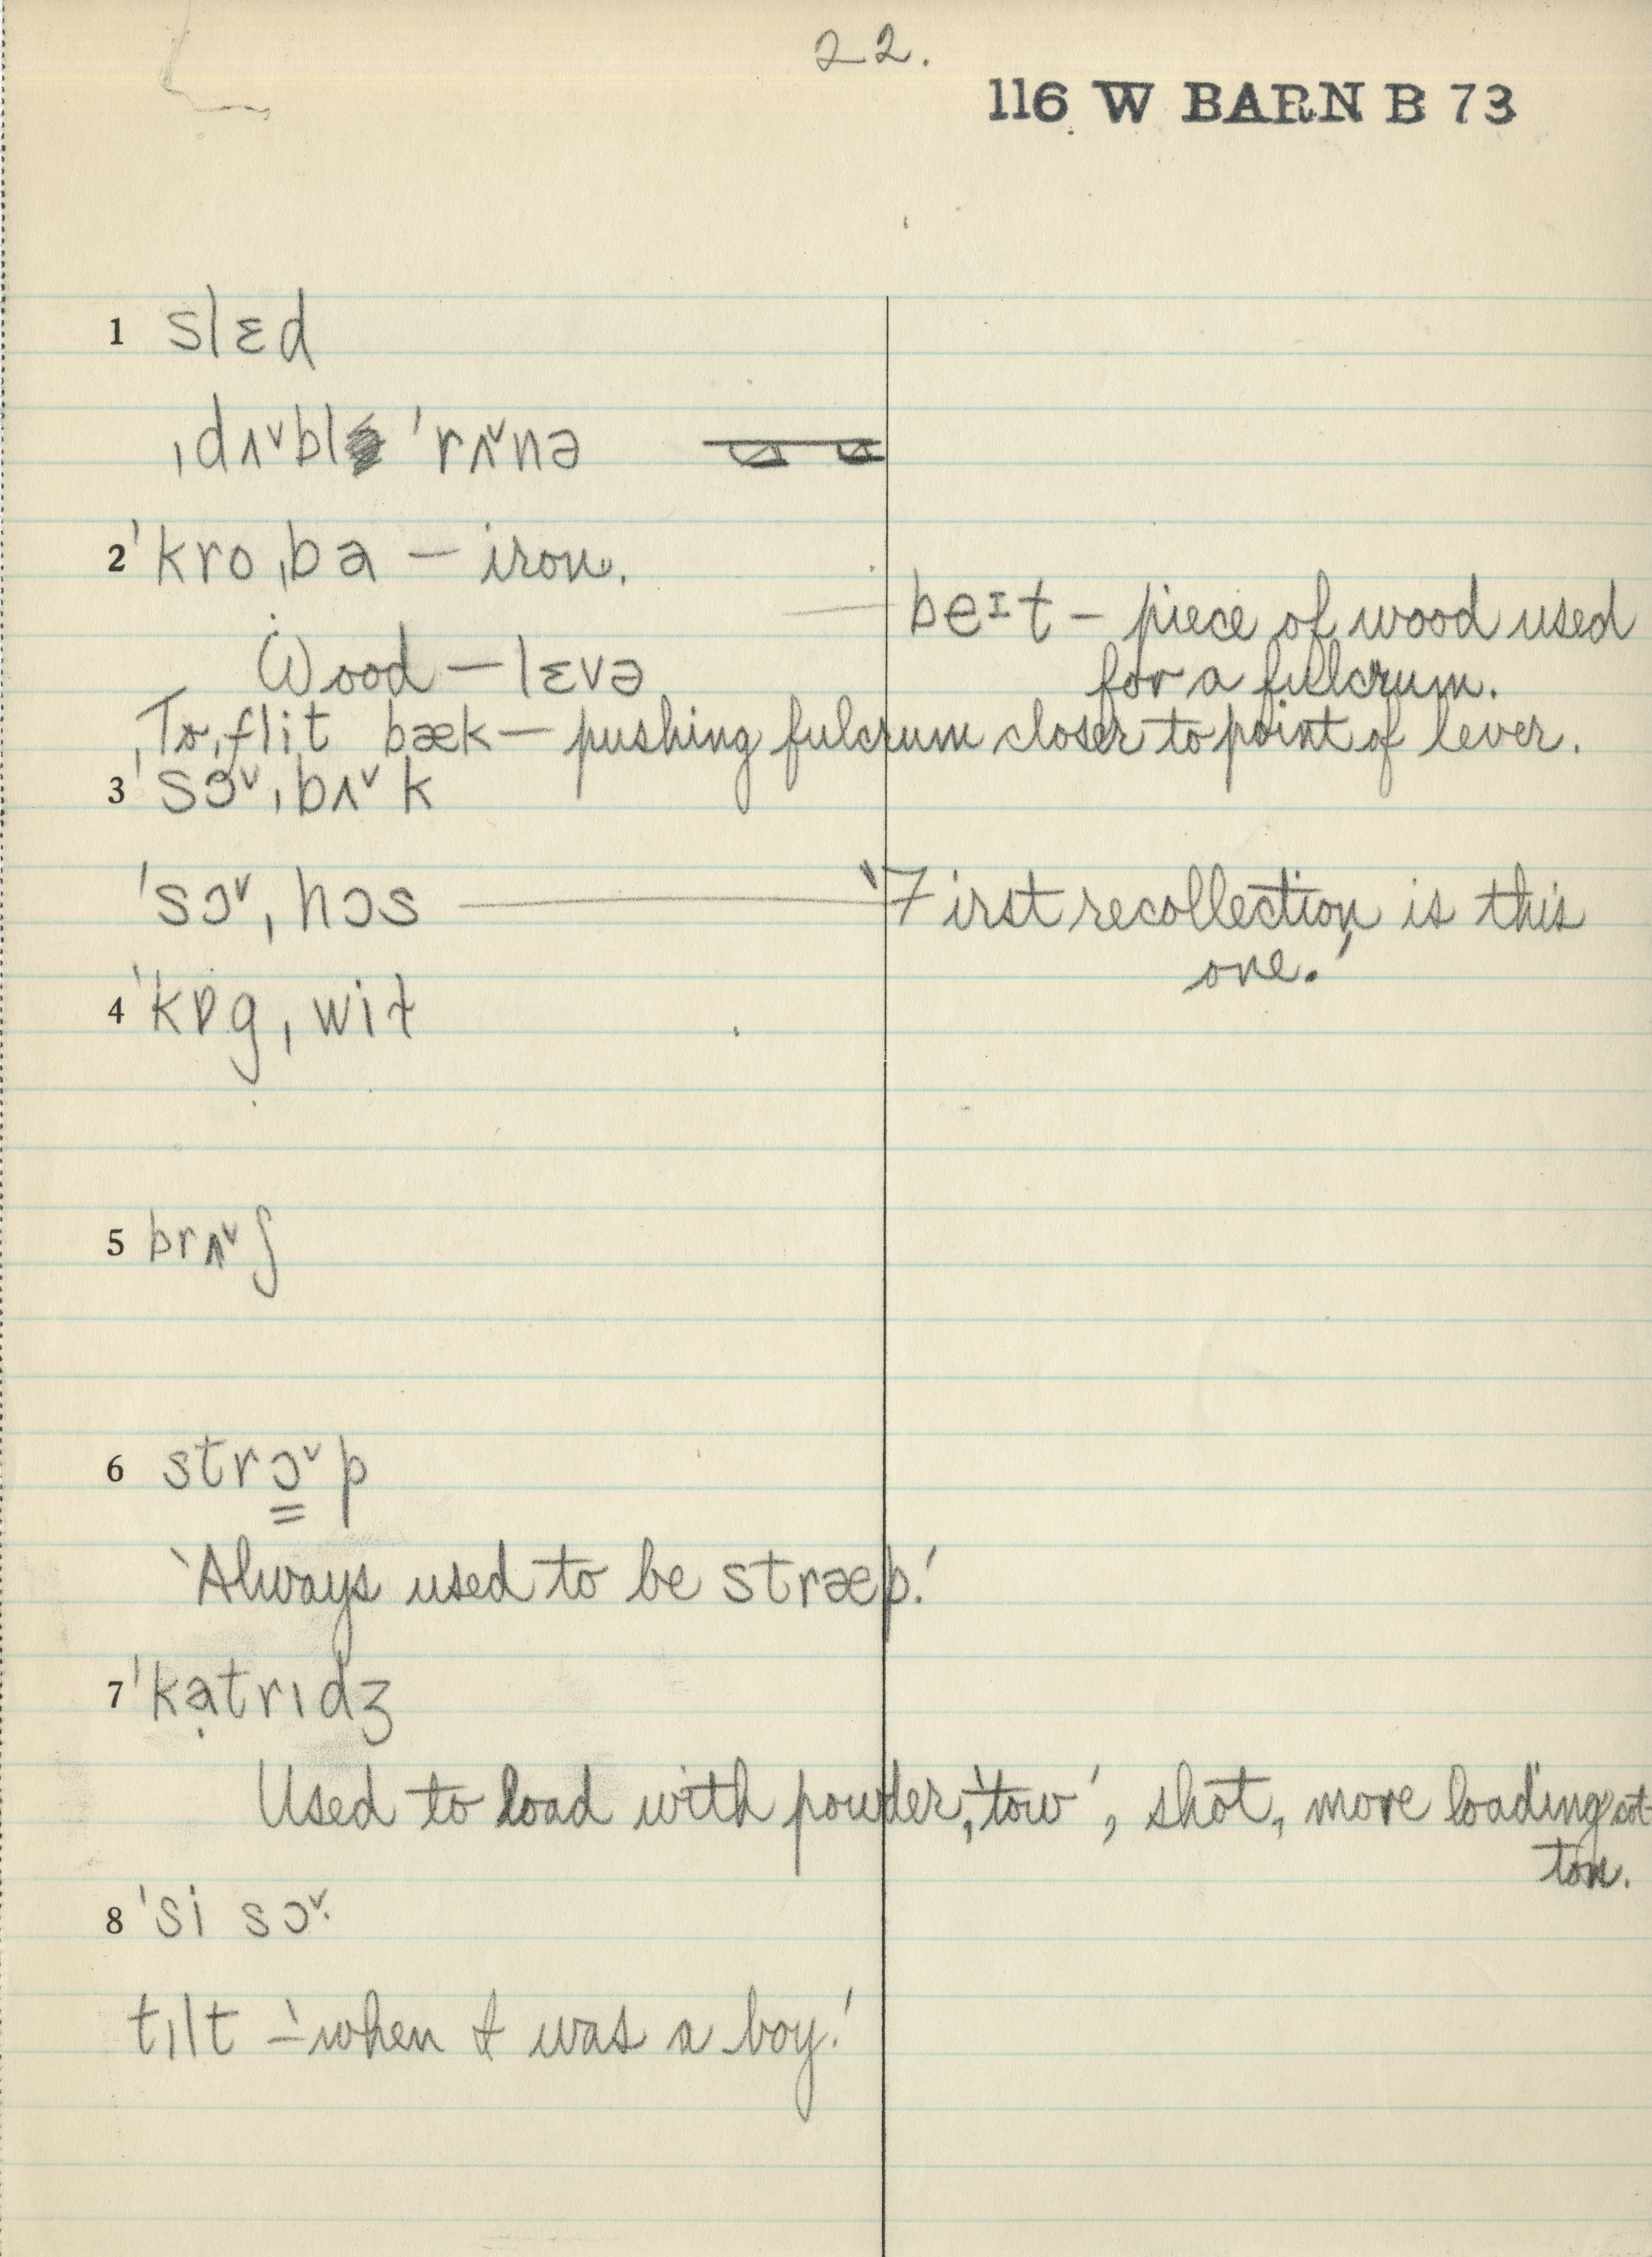 22.
116 W BARN B 73
1 slɛd
ˌdʌ˅bl ˈrʌ˅nə
2 ˈkroˌba — iron.
beɪt — piece of wood used
for a fulcrum.
Wood — lɛvə
To ˌflit bæk — pushing fulcrum closer to point of lever.
3 ˈsɔ˅ˌbʌ˅k
ˈsɔ˅ˌhɔs — 'First recollection is this
one.'
4 ˈkɒgˌwit
5 brʌ˅ʃ
6 strɔ˅p
'Always used to be stræp.'
7 ˈkạtrɪdʒ
Used to load with powder, 'tow', shot, more loading cot-
ton.
8 ˈsi sɔ˅·
tɪlt — 'when I was a boy.'